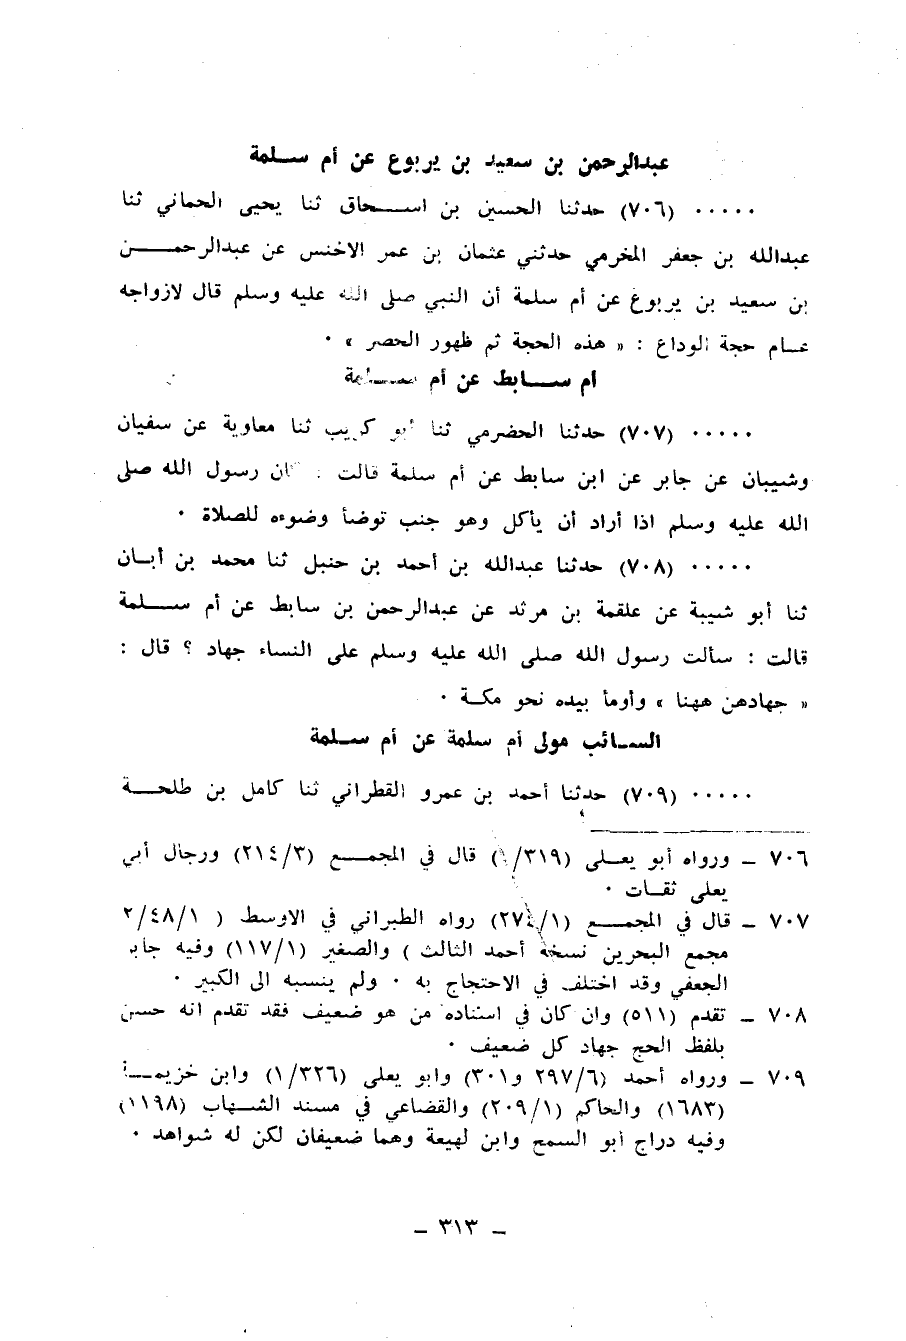 عبدالرحمن بن سعيد بن يربوع عن أم سلمة
٠٠٠٠٠ (٧٠٦) حدثنا الحسين بن اسحاق ثنا يحيى الحماني ثنا
عبدالله بن جعفر المخرمي حدثني عثمان بن عمر الاخنس عن عبدالرحمن
بن سعيد بن يربوع عن أم سلمة أن النبي صلى الله عليه وسلم قال لازواجه
عام حجة الوداع : « هذه الحجة ثم ظهور الحصر » ٠
أم سابط عن أم سلمة
٠٠٠٠٠ (٧٠٧) حدثنا الحضرمي ثنا أبو كريب ثنا معاوية عن سفيان
وشيبان عن جابر عن ابن سابط عن أم سلمة قالت : كان رسول الله صلى
الله عليه وسلم اذا أراد أن يأكل وهو جنب توضأ وضوءه للصلاة ٠
٠٠٠٠٠ (٧٠٨) حدثنا عبدالله بن أحمد بن حنبل ثنا محمد بن أبان
ثنا أبو شيبة عن علقمة بن مرثد عن عبدالرحمن بن سابط عن أم سلمة
قالت : سألت رسول الله صلى الله عليه وسلم على النساء جهاد ؟ قال :
« جهادهن ههنا » وأومأ بيده نحو مكة ٠
السائب مولى أم سلمة عن أم سلمة
٠٠٠٠٠ (٧٠٩) حدثنا أحمد بن عمرو القطراني ثنا كامل بن طلحة
٧٠٦ – ورواه أبو يعلى (٣١٩/) قال في المجمع (٢١٤/٣) ورجال أبي
يعلى ثقات ٠
٧٠٧ – قال في المجمع (٢٧٤/١) رواه الطبراني في الاوسط ( ٢/٤٨/١
مجمع البحرين نسخة أحمد الثالث ) والصغير (١١٧/١) وفيه جابر
الجعفي وقد اختلف في الاحتجاج به ٠ ولم ينسبه الى الكبير ٠
٧٠٨ – تقدم (٥١١) وان كان في اسناده من هو ضعيف فقد تقدم انه حسن
بلفظ الحج جهاد كل ضعيف ٠
٧٠٩ – ورواه أحمد (٢٩٧/٦ و٣٠١) وابو يعلى (١/٣٢٦) وابن خزيمة
(١٦٨٣) والحاكم (٢٠٩/١) والقضاعي في مسند الشهاب (١١٩٨)
وفيه دراج أبو السمح وابن لهيعة وهما ضعيفان لكن له شواهد ٠
– ٣١٣ –